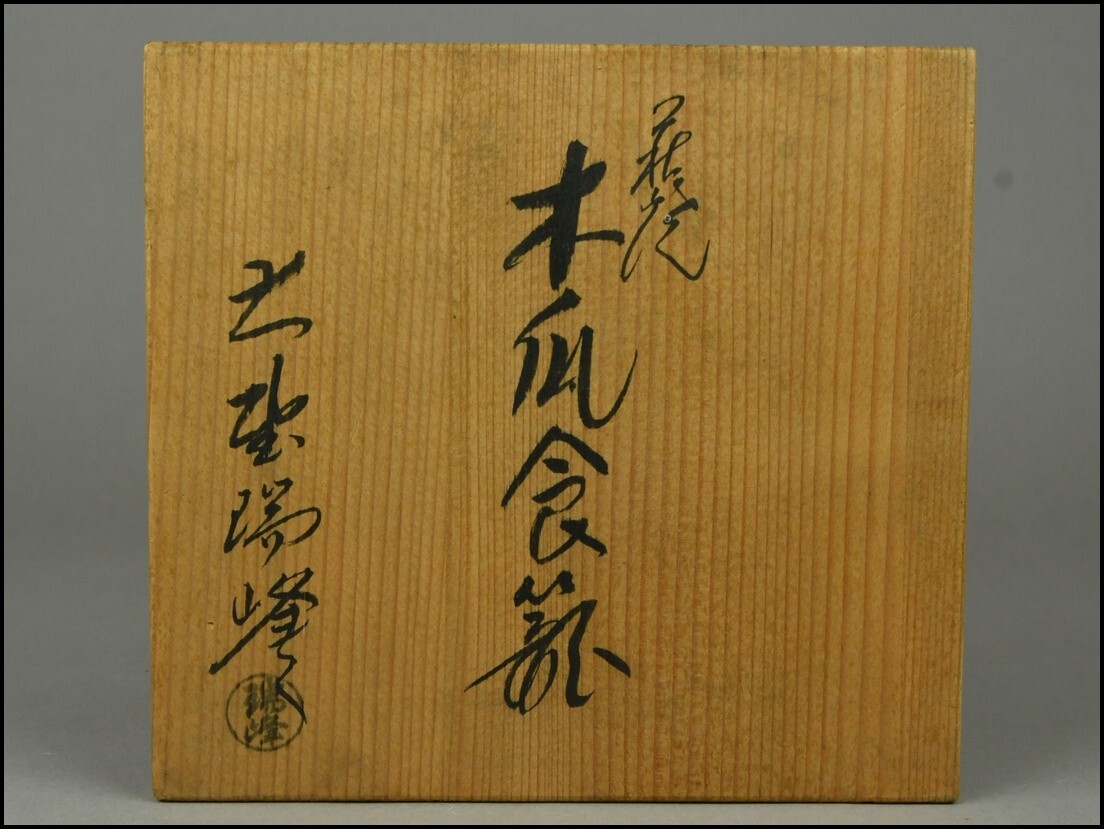 萩焼
木瓜食籠
土聖瑞峰
瑞峰